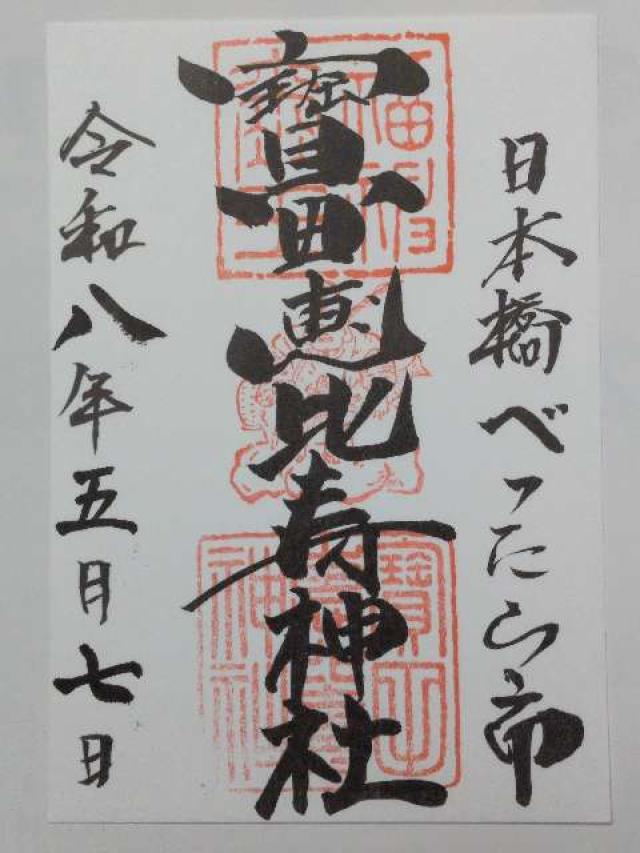 日本橋べったら市
寶田恵比寿神社
令和八年五月七日